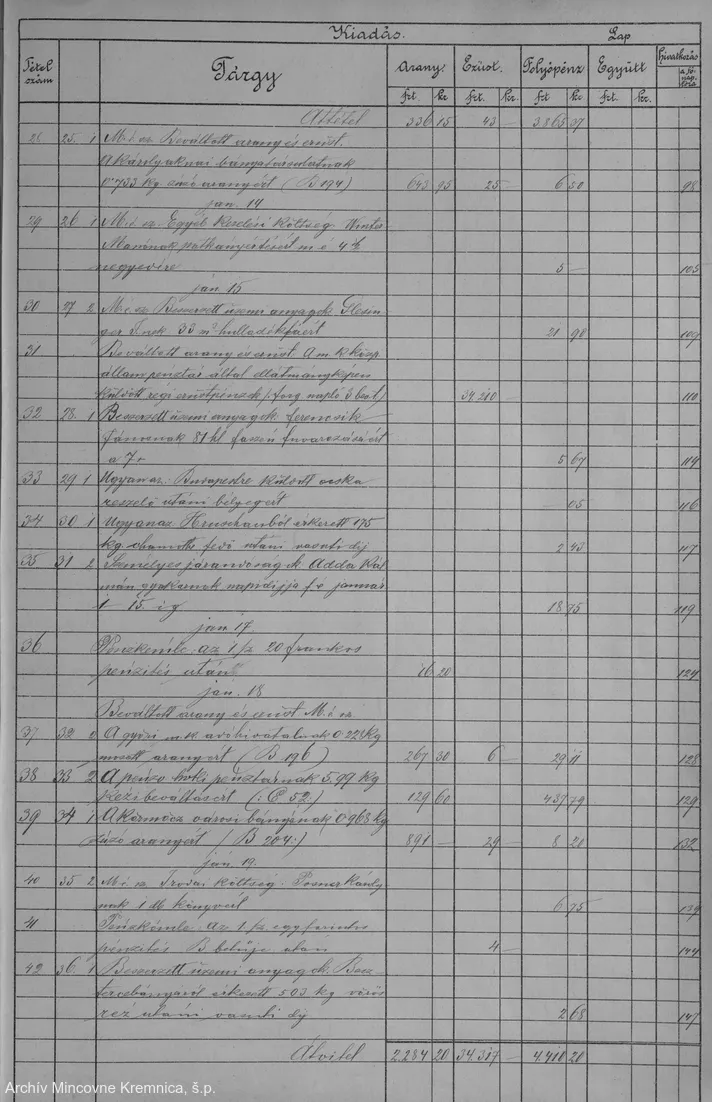 Kiadás.
Lap
Tétel szám Tárgy Arany: Ezüst. Folyópénz Együtt Hivatkozás a fő naplóra
frt. kr frt. kr. frt kr frt. kr.
Áttétel 336 15 43 — 3.865 37
28 25. 1 M. é. sz. Beváltott arany és ezüst.
A károlyaknai bányatársulatnak
kg. zúzó aranyért (B 194) 643 95 25 — 6 50 98
jan. 14
29 26 1 M. é. sz. Egyéb kezelési költség.
negyedévre 5 — 105
jan. 15
30 27 2 M. é. sz. Beszerzett üzemi anyagok.
33 m³ hulladékfáért 21 90 109
31 Beváltott arany és ezüst. A m. k. közp.
állampénztár által ellátmányképen
küldött régi ezüstpénzek (: forg. napló 3 beat.) 34.210 — 110
32 28. 1 Beszerzett üzemi anyagok. Ferencsik
Jánosnak 81 hl faszén fuvarozásáért
a 7 5 67 114
33 29 1 Ugyanaz. Budapestre küldött ócska
reszelő utáni bélyegért — 05 116
34 30 1 Ugyanaz. Hruschauból érkezett 175
kg. utáni vasuti díj 2 43 117
35 31 2 Személyes járandóságok. Adda Kál-
mán gyakornok napidíjja f. é. január
1 — 15. ig 18 75 119
jan. 17
36 Pénzkémle az 1 sz 20 frankos
pénzítés után 16 20 124
jan. 18
Beváltott arany és ezüst M. é. sz.
37 32 2 A győri m. k. adóhivatalnak 0.228 kg
aranyért (B 196) 267 30 6 — 29 11 128
38 33 2 A pénzv. hiv. pénztárnak 5.99 kg
kézi beváltásért (: C 52.) 129 60 437 79 129
39 34 1 A körmöcz városi bányának 0.968 kg
zúzó aranyért (B 204.) 891 — 29 — 8 20 132
jan. 19.
40 35 2 M. é. sz. Irodai költség. Posner Károly-
nak 1 db könyvért 6 75 139
41 Pénzkémle. Az 1 sz egy forintos
pénzítés B betűje után 4 — 144
42 36. 1 Beszerzett üzemi anyagok. Besz-
terczebányáról érkezett 503 kg vörös
réz utáni vasuti díj 2 68 147
Átvitel 2.284 20 34.317 — 4.410 20
Archív Mincovne Kremnica, š.p.